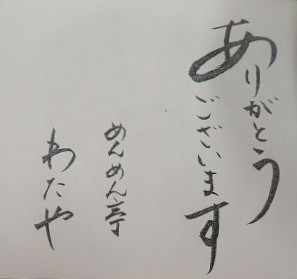 ありがとう
ございます
めんめん亭
わたや